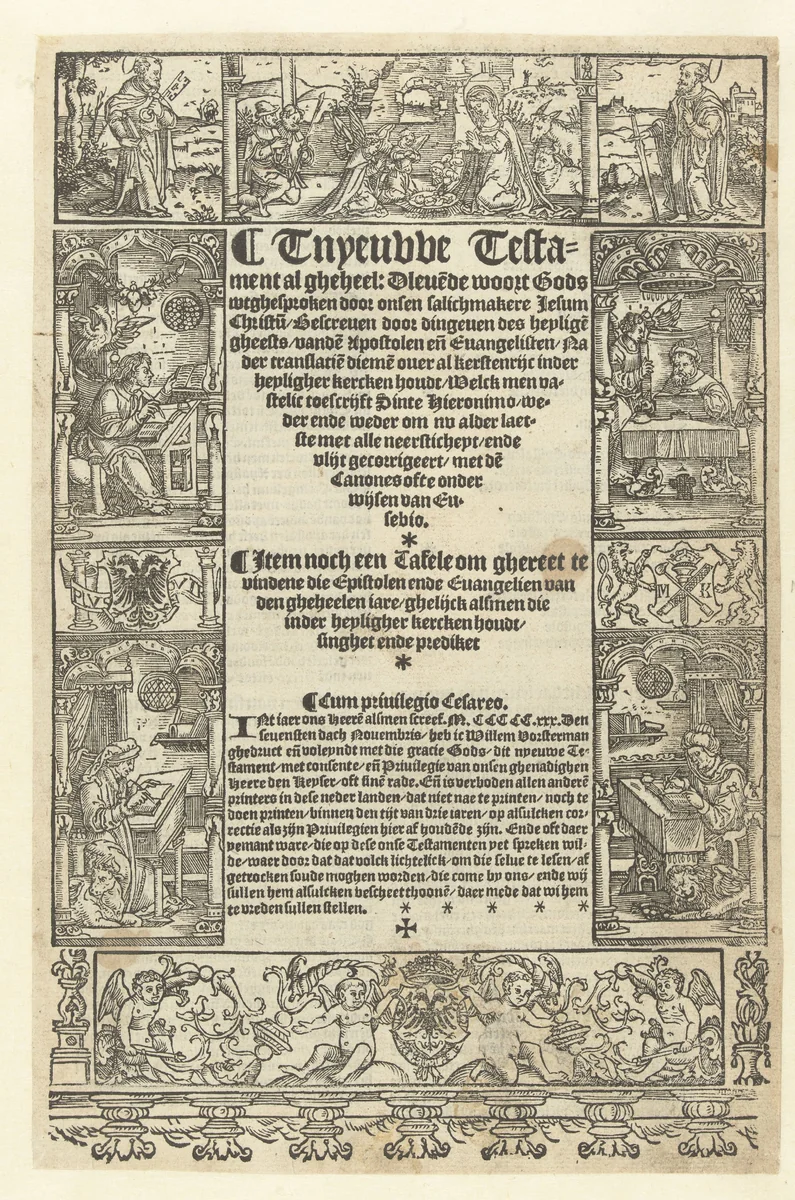 ¶ Tnyeuvve Testa=
ment al gheheel: Dleuēde woort Gods
wtghesproken door onsen salichmakere Jesum
Christū/Bescreuen door dingeuen des heyligē
gheests/vandē Apostolen eñ Euangelisten/Na
der translatiē diemē ouer al kerstenrijc inder
heyligher kercken houdt/Welck men va-
stelic toescrijft Sinte Hieronimo/we-
der ende weder om nv alder laet-
ste met alle neersticheyt/ende
vlijt gecorrigeert/met dē
Canones ofte onder
wijsen van Eu-
sebio.
*
¶ Item noch een Tafele om ghereet te
vindene die Epistolen ende Euangelien van
den gheheelen iare/ghelijck alsmen die
inder heyligher kercken houdt/
singhet ende prediket
*
PLVS
VLT
M K
¶Cum priuilegio Cesareo.
INt iaer ons Heerē alsmen screef. M. CCCCC.xxx. Den
seuensten dach Nouembris/heb ic Willem Vorsterman
ghedruct eñ voleyndt met die gracie Gods/dit nyeuwe Te-
stament/met consente/eñ Priuilegie van onsen ghenadighen
Heere den Keyser/oft sinē rade. Eñ is verboden allen anderē
printers in dese neder landen/dat niet nae te printen/noch te
doen printen/binnen den tijt van drie iaren/op alsulcken cor-
rectie als zijn Priuilegien hier af houdēde zijn. Ende oft daer
yemant ware/die op dese onse Testamenten yet spreken wil-
de/waer door dat dat volck lichtelick/om die selue te lesen/af
getrocken soude moghen worden/die come by ons/ende wij
sullen hem alsulcken bescheet thoonē/daer mede dat wi hem
te vreden sullen stellen. * * * * *
✠